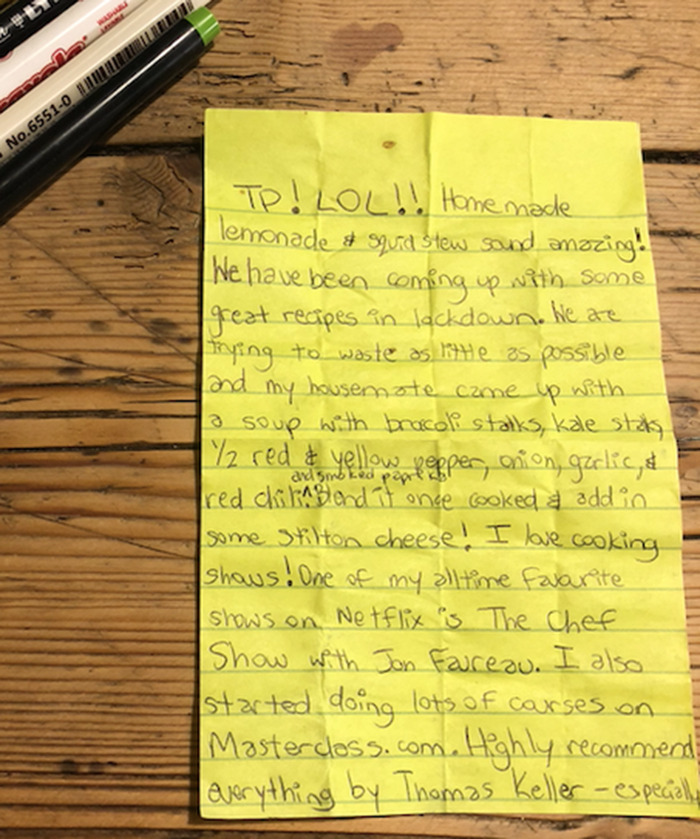 WASHABLE
No.6551-0
TP! LOL!! Homemade
lemonade & squid stew sound amazing!
We have been coming up with some
great recipes in lockdown. We are
trying to waste as little as possible
and my housemate came up with
a soup with brocoli stalks, kale stalks,
1/2 red & yellow pepper, onion, garlic, &
and smoked paprika
red chili. Blend it once cooked & add in
some stilton cheese! I love cooking
shows! One of my alltime favourite
shows on Netflix is The Chef
Show with Jon Favreau. I also
started doing lots of courses on
Masterclass.com. Highly recommend
everything by Thomas Keller - especially